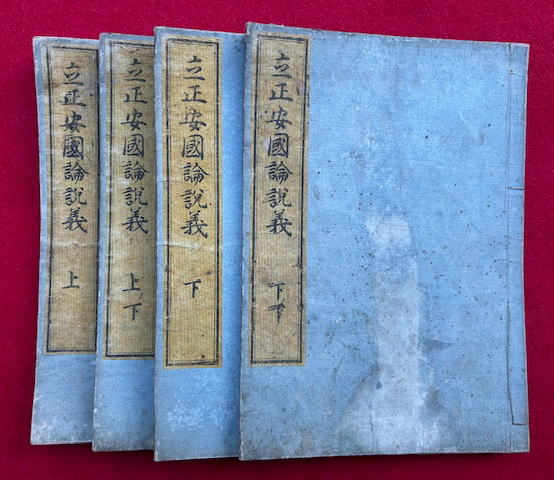 立正安國論說義 上
立正安國論說義 上下
立正安國論說義 下
立正安國論說義 下下